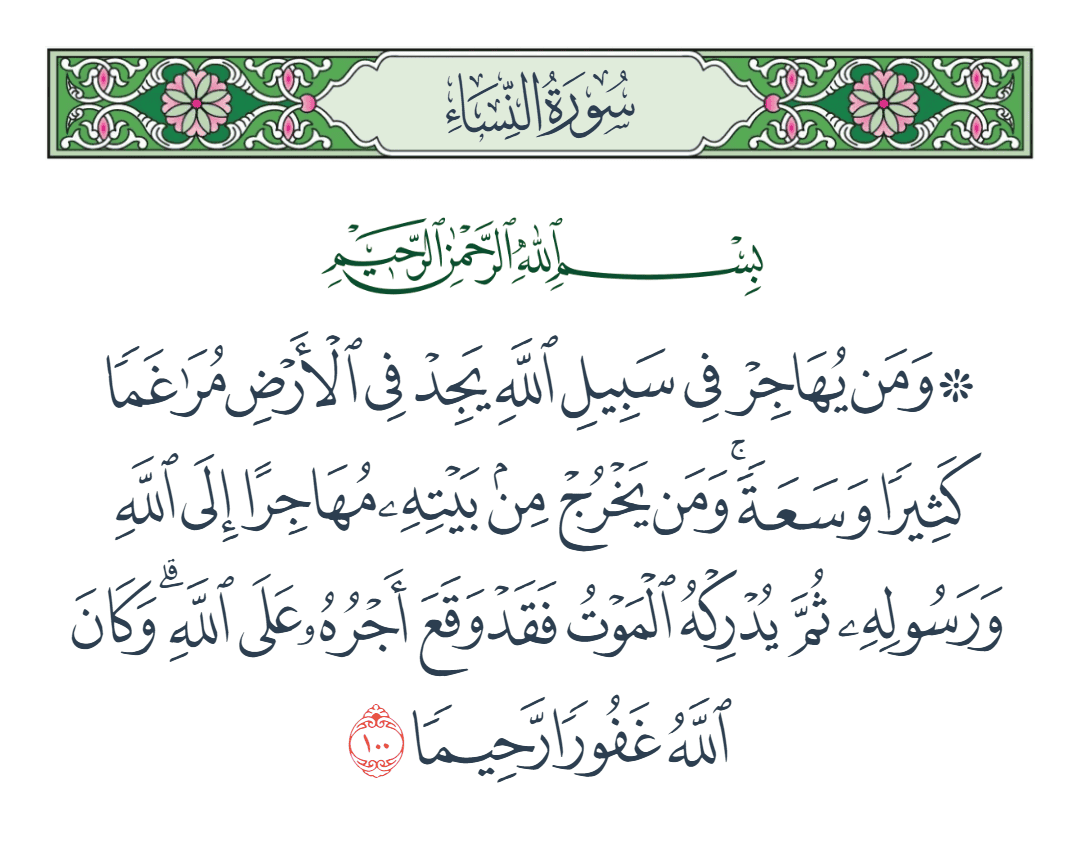 سُورَةُ النِّسَاءِ
بِسْمِ ٱللَّهِ ٱلرَّحْمَٰنِ ٱلرَّحِيمِ
۞ وَمَن يُهَاجِرْ فِى سَبِيلِ ٱللَّهِ يَجِدْ فِى ٱلْأَرْضِ مُرَٰغَمًا
كَثِيرًا وَسَعَةً ۚ وَمَن يَخْرُجْ مِنۢ بَيْتِهِۦ مُهَاجِرًا إِلَى ٱللَّهِ
وَرَسُولِهِۦ ثُمَّ يُدْرِكْهُ ٱلْمَوْتُ فَقَدْ وَقَعَ أَجْرُهُۥ عَلَى ٱللَّهِ ۗ وَكَانَ
ٱللَّهُ غَفُورًا رَّحِيمًا ١٠٠